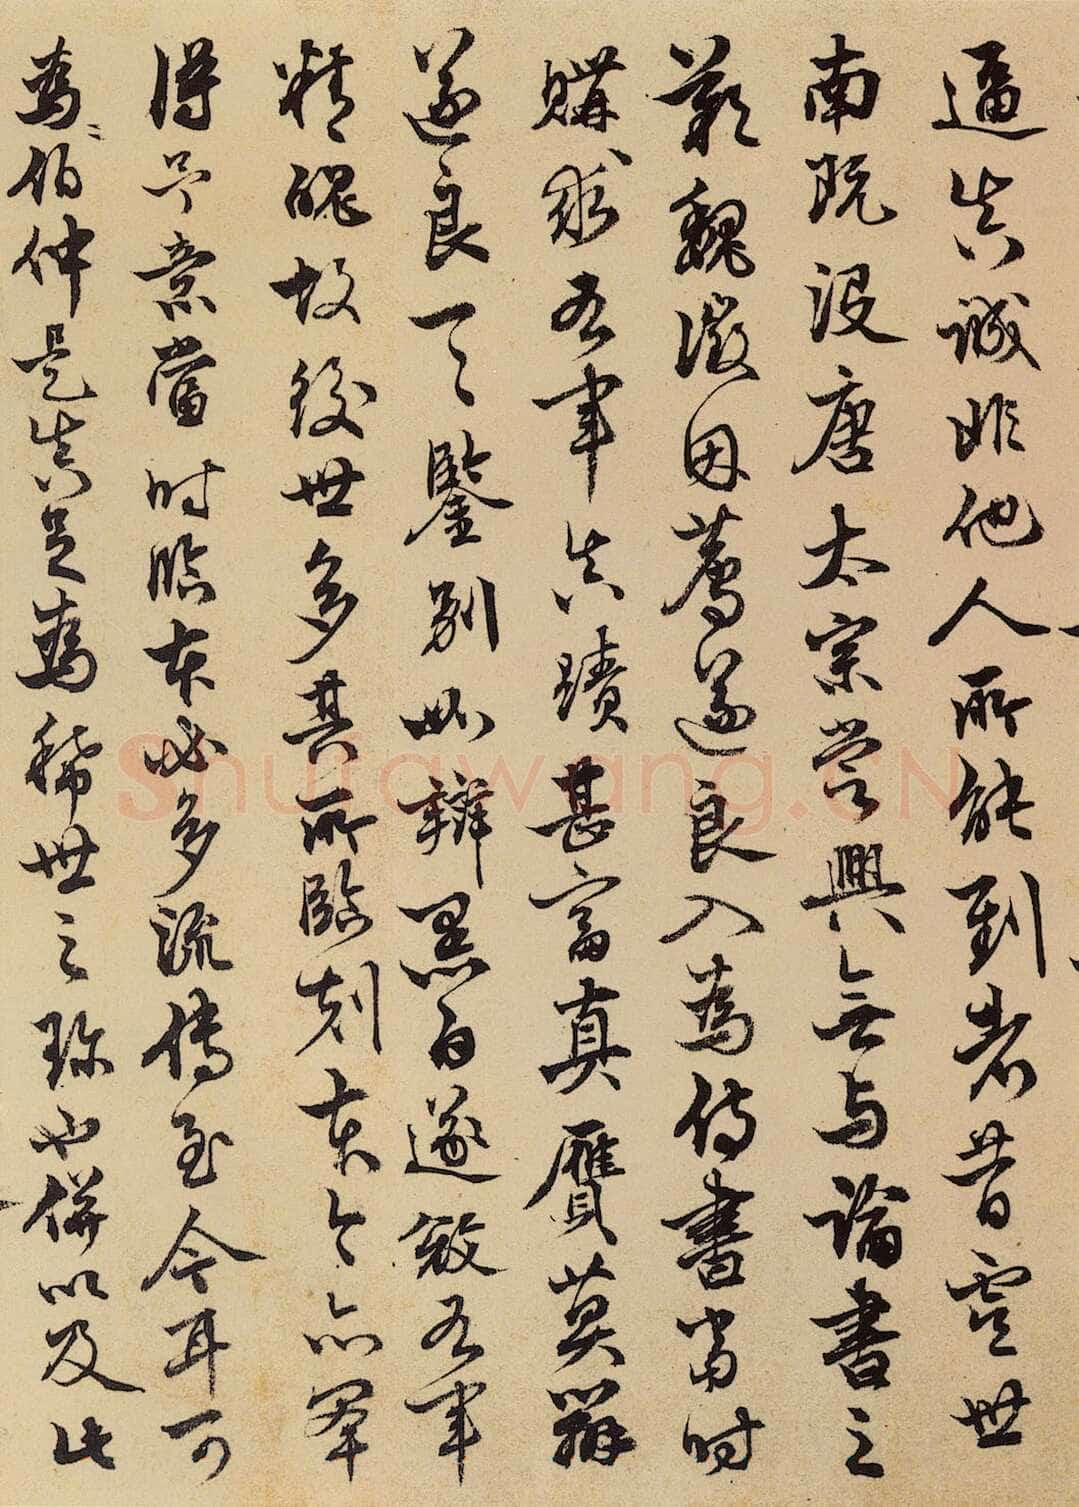 逼真誠非他人所能到者昔虞世
南既沒唐太宗嘗興無与論書之
歎魏徵因薦遂良入為侍書當時
購求右軍真蹟甚富真贋莫辯
遂良一一鑒別如辯黑白遂殺右軍
精魄故後世多其所臨刻本今亦罕
得予意當時臨本必多流傳至今耳可
為伯仲是真足為稀世之珍也併以及此
Shufawang.CN